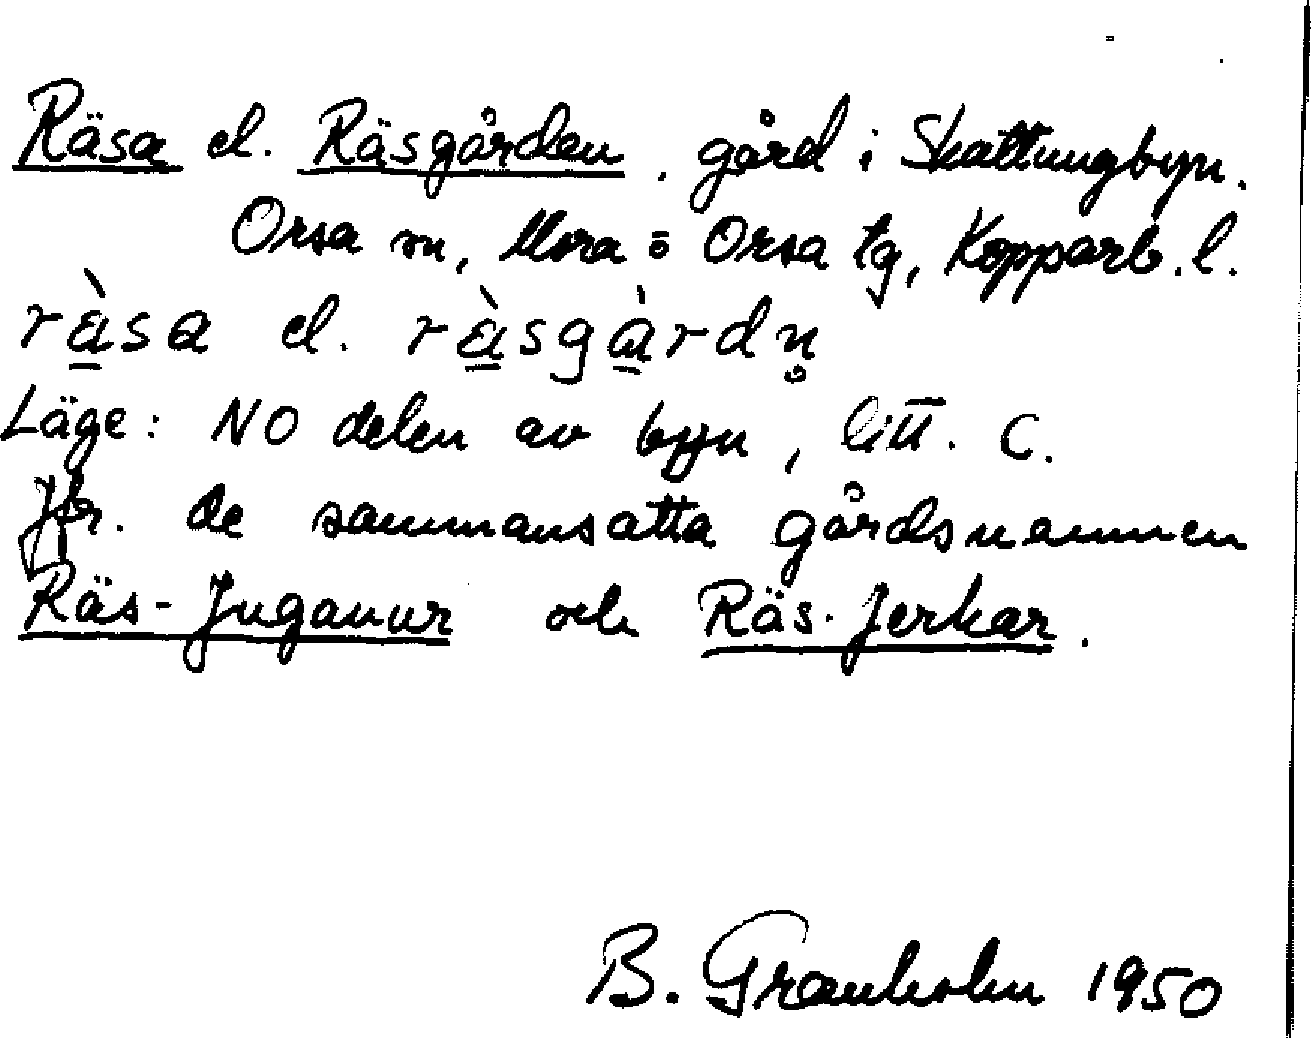 Räsa el. Räsgården, gård i Skattungbyn.
Orsa sn, Mora o Orsa tg, Kopparb. l.
rä̀sa el. rä̀sgàrdn̥
Läge: NO delen av byn, litt. C.
Jfr. de sammansatta gårdsnamnen
Räs-Juganur och Räs-Jerkar.
B. Granholm 1950